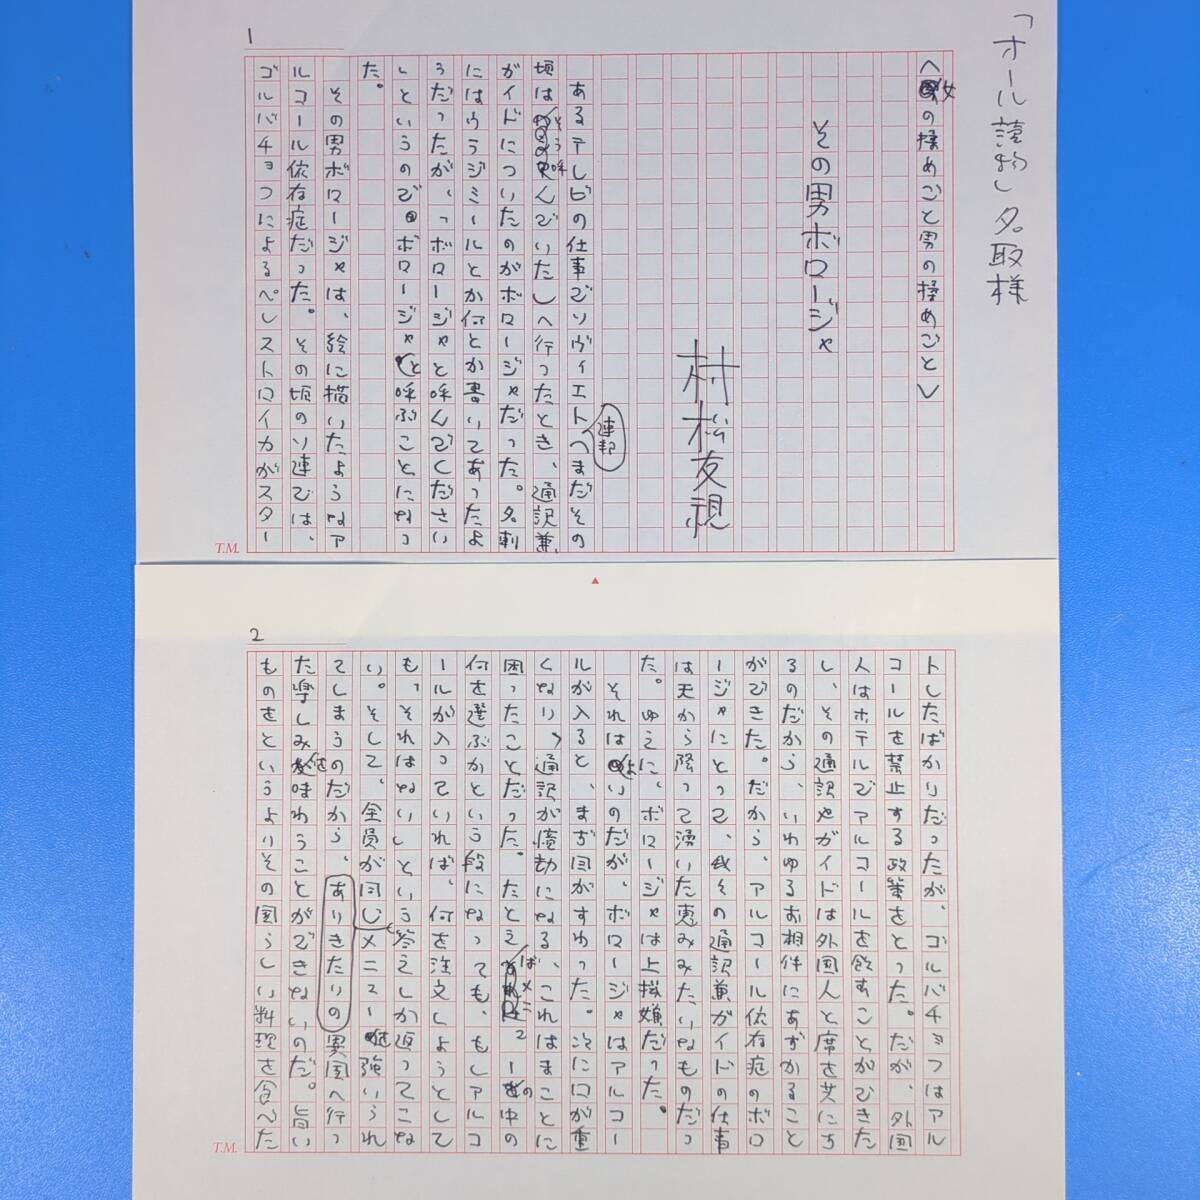 「オール讀物」名取様
1
へ女の揉めごと男の揉めごと〉
その男ボロージャ
村松友視
あるテレビの仕事でソヴィエト連邦へまだその
頃はそう呼んでいたしへ行ったとき、通訳兼
ガイドについたのがボロージャだった。名刺
にはウラジミールとか何とか書いてあったよ
うだったが、「ボロージャと呼んでください
」というのでボロージャと呼ぶことになっ
た。
その男ボロージャは、絵に描いたようなア
ルコール依存症だった。その頃のソ連では、
ゴルバチョフによるペレストロイカがスター
T.M.
2
トしたばかりだったが、ゴルバチョフはアル
コールを禁止する政策をとった。だが、外国
人はホテルでアルコールを飲すことができた
し、その通訳やガイドは外国人と席を共にす
るのだから、いわゆるお相伴にあずかること
ができた。だから、アルコール依存症のボロ
ージャにとって、その通訳兼ガイドの仕事
は天から降って湧いた恵みみたいなものだっ
た。ゆえに、ボロージャは上機嫌だった。
それはよいのだが、ボロージャはアルコー
ルが入ると、まず目がすわった。次に口が重
くなり、通訳が億劫になる、これはまことに
困ったことだった。たとえばメニューの中の
何を選ぶかという段になっても、もしアルコ
ールが入っていれば、何を注文しようとして
も「それはない」という答えしか返ってこな
い。そして、全員が同じメニューを強いられ
てしまうのだから、ありきたりの異国へ行っ
た楽しみを味わうことができないのだ。旨い
ものをというよりその国らしい料理を食べた
T.M.